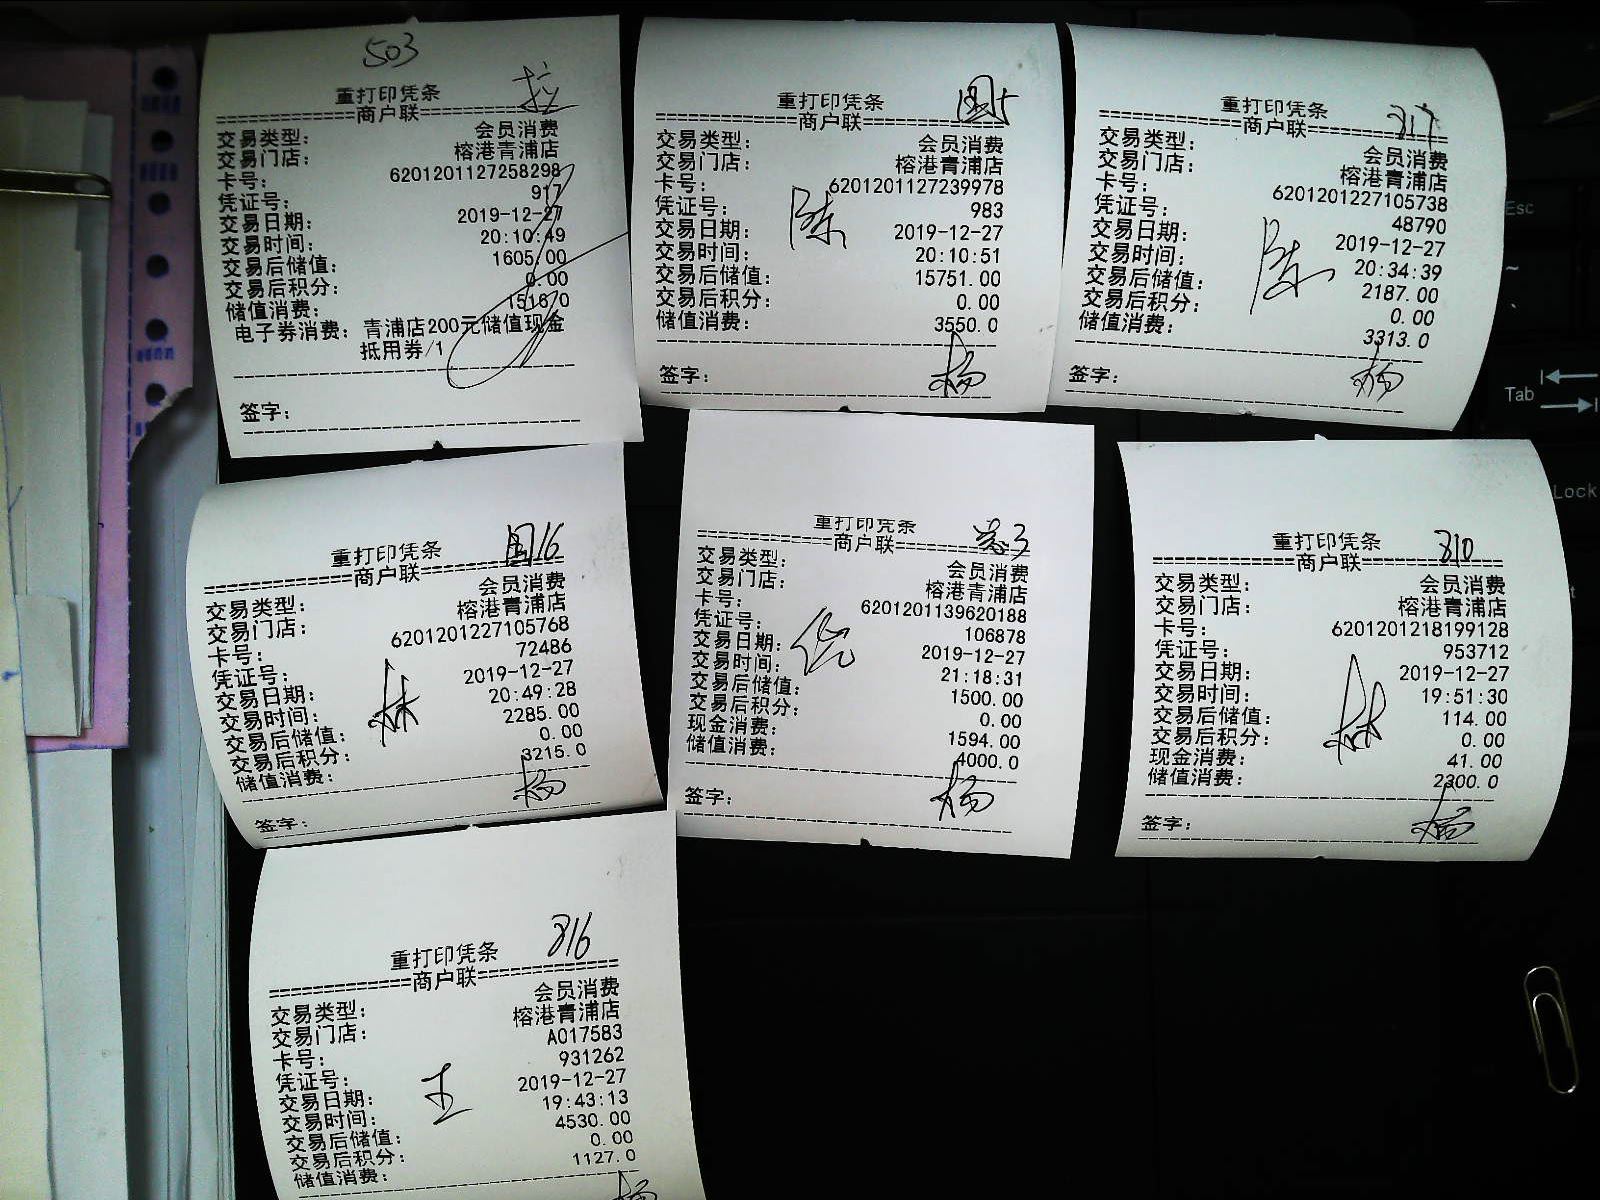 503
重打印凭条
=============商户联=============
交易类型: 会员消费
交易门店: 榕港青浦店
卡号: 6201201127258298
凭证号: 917
交易日期: 2019-12-27
交易时间: 20:10:49
交易后储值: 1605.00
交易后积分: 0.00
储值消费: 1516.0
电子券消费: 青浦店200元储值现金
抵用券/1
签字:
国5
重打印凭条
=============商户联=============
交易类型: 会员消费
交易门店: 榕港青浦店
卡号: 6201201127239978
凭证号: 983
交易日期: 2019-12-27
交易时间: 20:10:51
交易后储值: 15751.00
交易后积分: 0.00
储值消费: 3550.0
陈
签字: 杨
317
重打印凭条
=============商户联=============
交易类型: 会员消费
交易门店: 榕港青浦店
卡号: 6201201227105738
凭证号: 48790
交易日期: 2019-12-27
交易时间: 20:34:39
交易后储值: 2187.00
交易后积分: 0.00
储值消费: 3313.0
陈
签字: 杨
国16
重打印凭条
=============商户联=============
交易类型: 会员消费
交易门店: 榕港青浦店
卡号: 6201201227105768
凭证号: 72486
交易日期: 2019-12-27
交易时间: 20:49:28
交易后储值: 2285.00
交易后积分: 0.00
储值消费: 3215.0
林
签字: 杨
重打印凭条
=============商户联=============
交易类型: 会员消费
交易门店: 榕港青浦店
卡号: 6201201139620188
凭证号: 106878
交易日期: 2019-12-27
交易时间: 21:18:31
交易后储值: 1500.00
交易后积分: 0.00
现金消费: 1594.00
储值消费: 4000.0
签字: 杨
310
重打印凭条
=============商户联=============
交易类型: 会员消费
交易门店: 榕港青浦店
卡号: 6201201218199128
凭证号: 953712
交易日期: 2019-12-27
交易时间: 19:51:30
交易后储值: 114.00
交易后积分: 0.00
现金消费: 41.00
储值消费: 2300.0
林
签字: 杨
316
重打印凭条
=============商户联=============
交易类型: 会员消费
交易门店: 榕港青浦店
卡号: A017583
凭证号: 931262
交易日期: 2019-12-27
交易时间: 19:43:13
交易后储值: 4530.00
交易后积分: 0.00
储值消费: 1127.0
王
杨
Esc
~
Tab
Lock